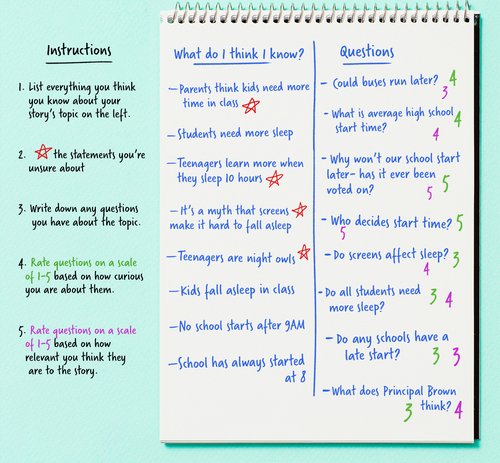 Instructions
1. List everything you think
you know about your
story's topic on the left.
2. the statements you're
unsure about
3. Write down any questions
you have about the topic.
4. Rate questions on a scale
of 1-5 based on how curious
you are about them.
5. Rate questions on a scale
of 1-5 based on how
relevant you think they
are to the story.
What do I think I know?
—Parents think kids need more
time in class
—Students need more sleep
—Teenagers learn more when
they sleep 10 hours
—It's a myth that screens
make it hard to fall asleep
—Teenagers are night owls
—Kids fall asleep in class
—No school starts after 9AM
—School has always started
at 8
Questions
- Could buses run later? 4
3
- What is average high school
start time? 4
4
- Why won't our school start
later- has it ever been
voted on? 5 5
- Who decides start time? 5
5
- Do screens affect sleep? 3
4
- Do all students need
more sleep? 3 4
- Do any schools have a
late start? 3 3
-What does Principal Brown
3 think? 4